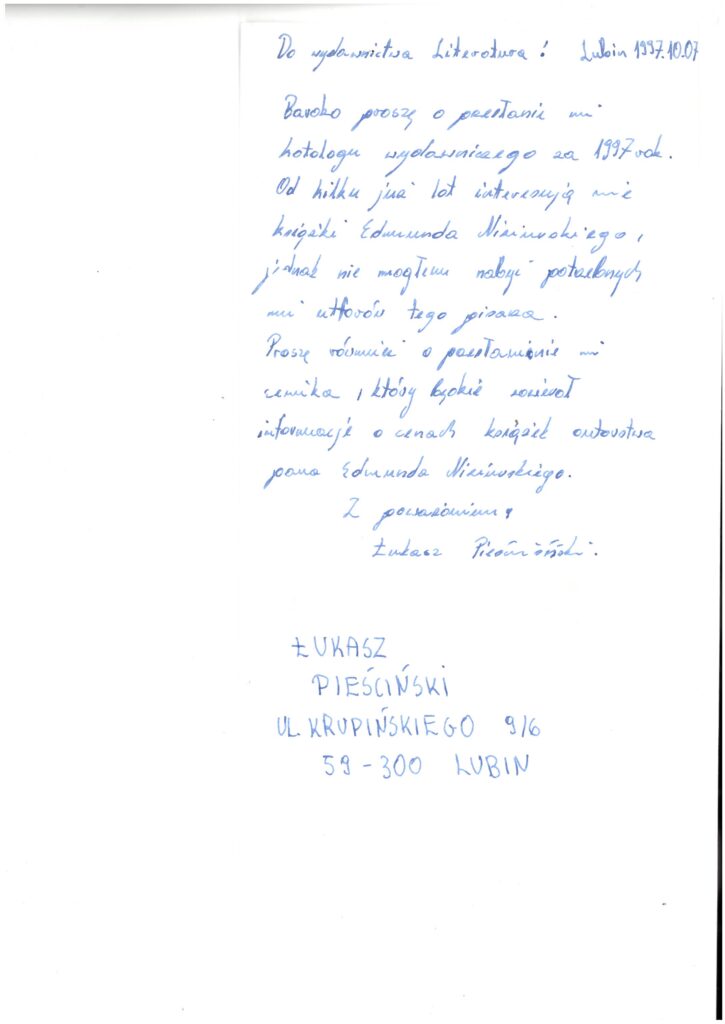 Do wydawnictwa Literatura! Lubin 1997.10.07
Bardzo proszę o przesłanie mi
katalogu wydawniczego za 1997 rok.
Od kilku już lat interesują mnie
książki Edmunda Niziurskiego,
jednak nie mogłem nabyć potrzebnych
mi utworów tego pisarza.
Proszę również o przesłanienie mi
cennika, który będzie zawierał
informacje o cenach książek autorstwa
pana Edmunda Niziurskiego.
Z poważaniem,
Łukasz Pieściński.
ŁUKASZ
PIEŚCIŃSKI
UL. KRUPIŃSKIEGO 9/6
59-300 LUBIN